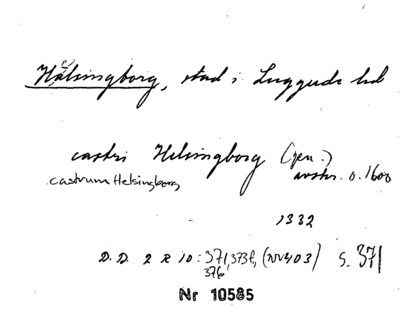 Hälsingborg, stad i Luggude hd
castri Helsingborg (gen.)
castrum Helsingborg avskr. o. 1600
1332
D. D. 2 R 10: 371, 373f, (nr 403) s. 371
376
Nr 10585